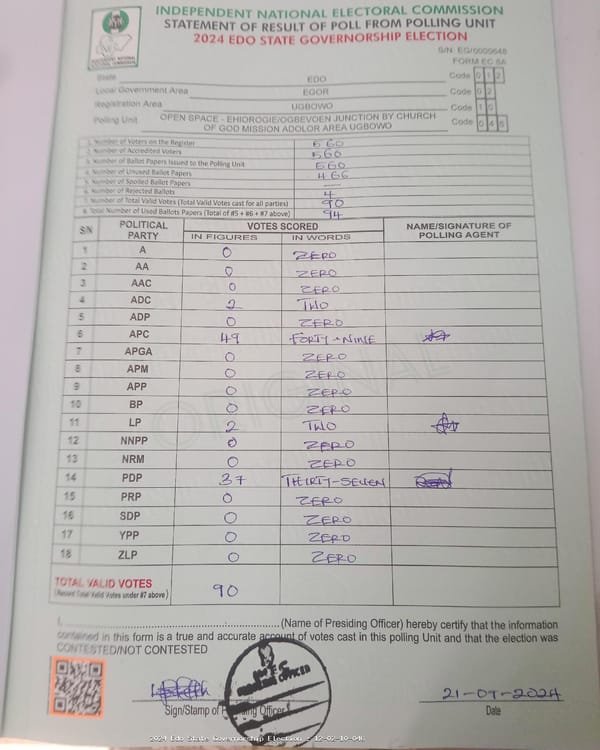 INDEPENDENT NATIONAL ELECTORAL COMMISSION
STATEMENT OF RESULT OF POLL FROM POLLING UNIT
2024 EDO STATE GOVERNORSHIP ELECTION
S/N: EG/0000648
FORM EC 8A
State EDO Code 0 1 2
Local Government Area EGOR Code 0 2
Registration Area UGBOWO Code 1 0
Polling Unit OPEN SPACE - EHIDROGIE/OGBEVOEN JUNCTION BY CHURCH OF GOD MISSION ADOLOR AREA UGBOWO Code 0 4 6
1. Number of Voters on the Register 560
2. Number of Accredited Voters 560
3. Number of Ballot Papers Issued to the Polling Unit 560
4. Number of Unused Ballot Papers 466
5. Number of Spoiled Ballot Papers —
6. Number of Rejected Ballots 4
7. Number of Total Valid Votes (Total Valid Votes cast for all parties) 90
8. Total Number of Used Ballots Papers (Total of #5 + #6 + #7 above) 94
S/N POLITICAL PARTY VOTES SCORED NAME/SIGNATURE OF POLLING AGENT
IN FIGURES IN WORDS
1 A 0 ZERO
2 AA 0 ZERO
3 AAC 0 ZERO
4 ADC 2 TWO
5 ADP 0 ZERO
6 APC 49 FORTY-NINE
7 APGA 0 ZERO
8 APM 0 ZERO
9 APP 0 ZERO
10 BP 0 ZERO
11 LP 2 TWO
12 NNPP 0 ZERO
13 NRM 0 ZERO
14 PDP 37 THIRTY-SEVEN
15 PRP 0 ZERO
16 SDP 0 ZERO
17 YPP 0 ZERO
18 ZLP 0 ZERO
ORIGINAL
TOTAL VALID VOTES 90
(Record Total Valid Votes under #7 above)
I, (Name of Presiding Officer) hereby certify that the information
contained in this form is a true and accurate account of votes cast in this polling Unit and that the election was
CONTESTED/NOT CONTESTED
INEC
PRESIDING OFFICER
21-09-2024
Sign/Stamp of Presiding Officer Date
2024 Edo State Governorship Election - 12-02-10-046